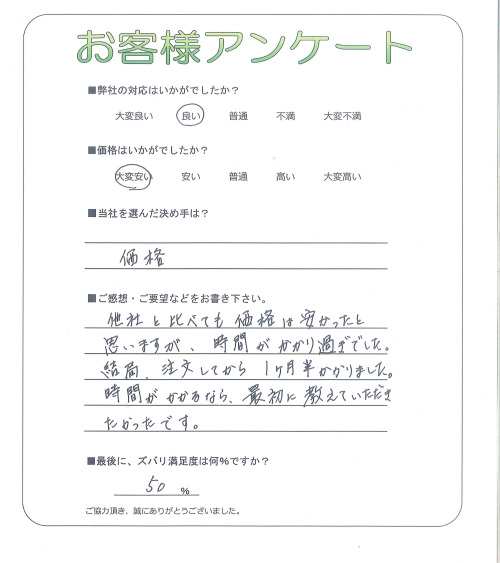 お客様アンケート
■弊社の対応はいかがでしたか？
大変良い 良い 普通 不満 大変不満
■価格はいかがでしたか？
大変安い 安い 普通 高い 大変高い
■当社を選んだ決め手は？
価格
■ご感想・ご要望などをお書き下さい。
他社と比べても価格は安かったと
思いますが、時間がかかり過ぎでした。
結局、注文してから1ヶ月半かかりました。
時間がかかるなら、最初に教えていただき
たかったです。
■最後に、ズバリ満足度は何%ですか？
50 %
ご協力頂き、誠にありがとうございました。